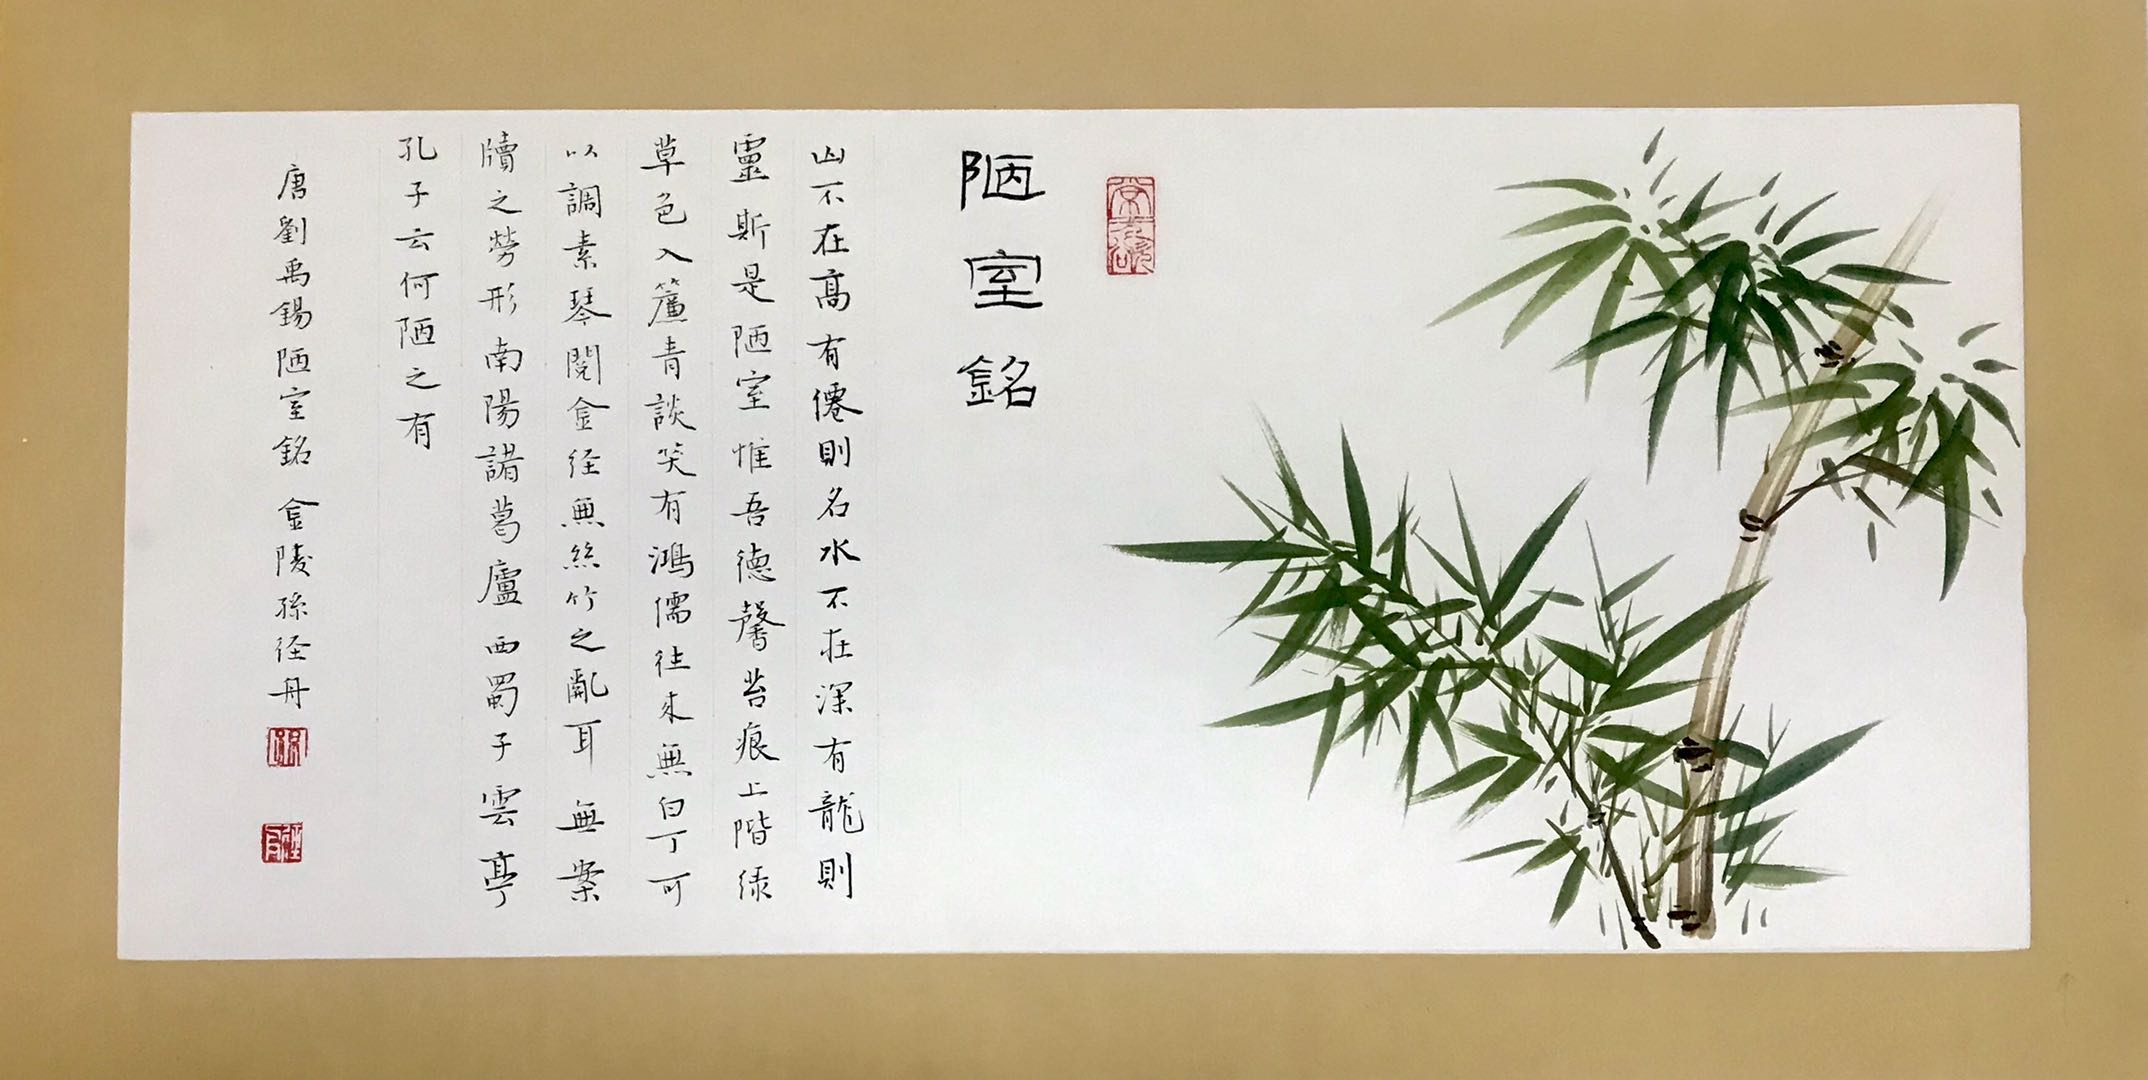 陋室銘
山不在高有僊則名水不在深有龍則
靈斯是陋室惟吾德馨苔痕上階緑
草色入簾青談笑有鴻儒往来無白丁可
以調素琴閲金経無絲竹之亂耳無案
牘之勞形南陽諸葛廬西蜀子雲亭
孔子云何陋之有
唐劉禹錫陋室銘金陵孫径舟